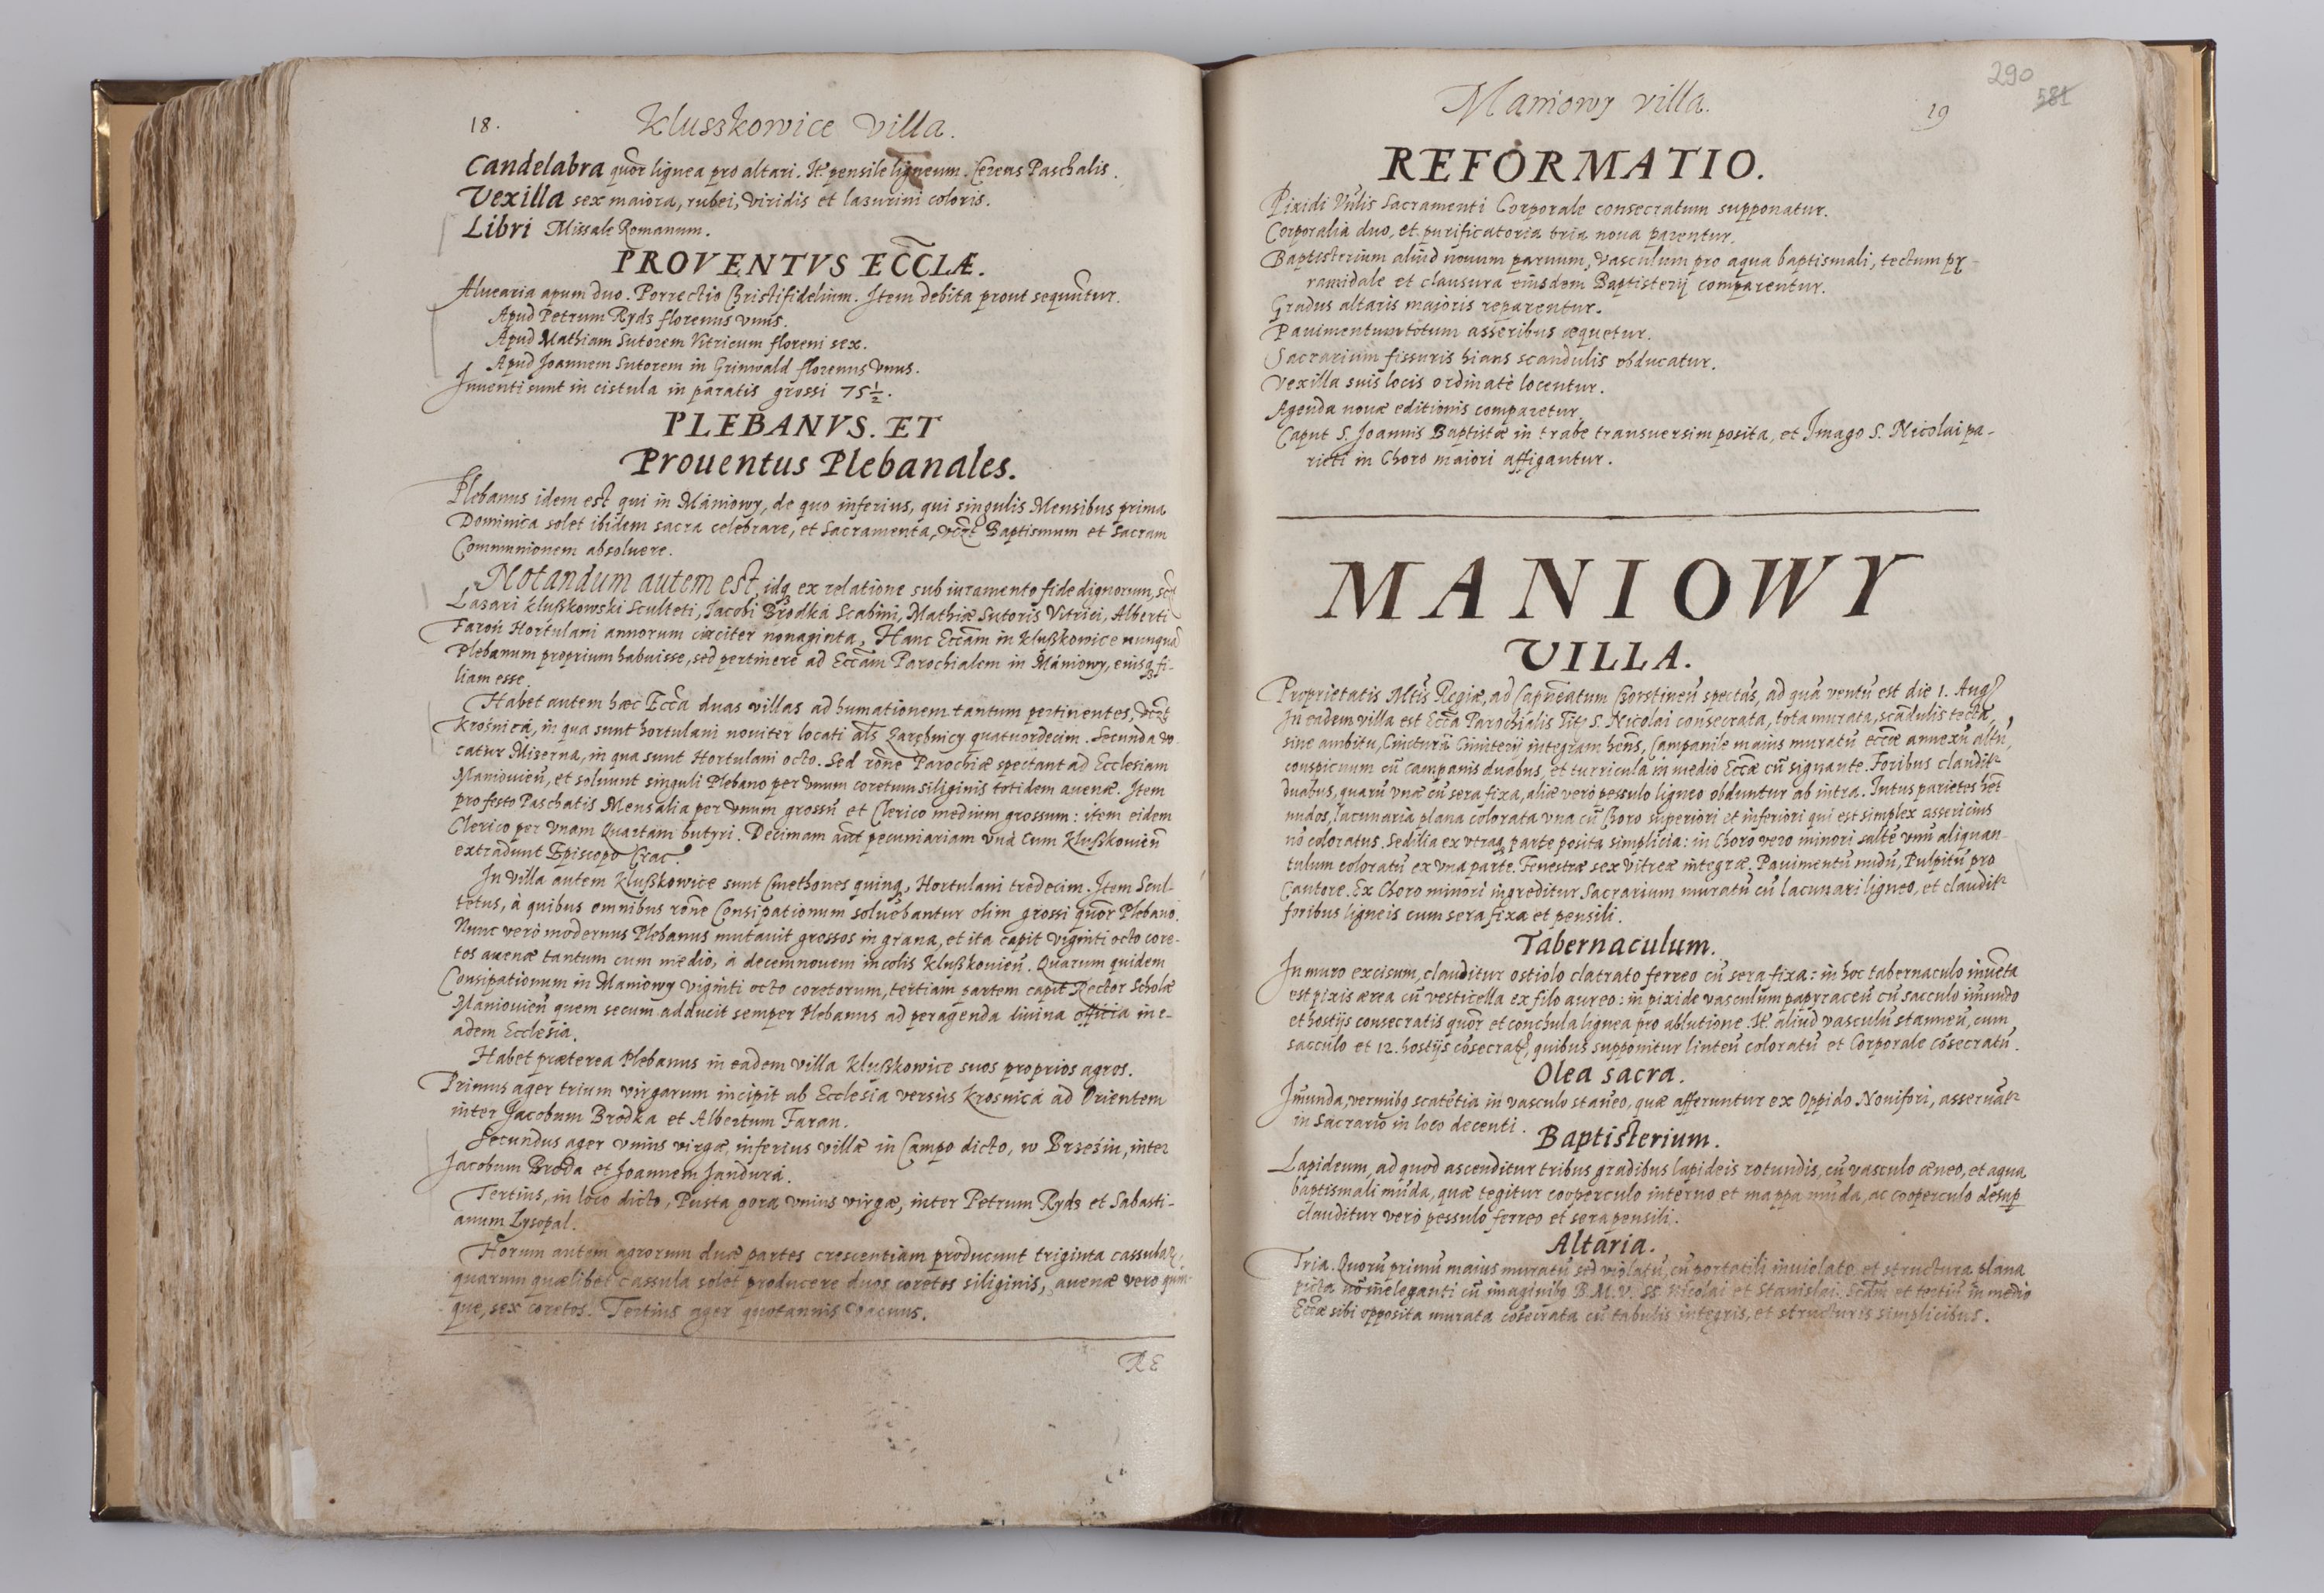 18.
Klusskowice Villa.
Candelabra quor lignea pro altari. It pensile ligneum. Cereus Paschalis.
Vexilla sex maiora, rubei, viridis et lazurini coloris.
Libri Missale Romanum.
PROVENTVS ECCLÆ.
Aluearia apum duo. Porrectio Christifidelium. Item debita prout sequntur.
Apud Petrum Ryds florenus vnus.
Apud Mathiam Sutorem Vitricum floreni sex.
Apud Joannem Sutorem in Grinwald florenus vnus.
Inuenti sunt in cistula in paratis grossi 75 1/2.
PLEBANVS. ET
Prouentus Plebanales.
Plebanus idem est qui in Mániowy, de quo inferius, qui singulis Mensibus prima
Dominica solet ibidem sacra celebrare, et Sacramenta, vczt Baptismum et Sacram
Communionem absoluere.
Notandum autem est, idq ex relatione sub iuramento fide dignorum, sct
Lazari Klußkowski Sculteti, Jacobi Brodká Scabini, Mathiæ Sutoris Vitrici, Alberti
Faroń Hortulani annorum circiter nonaginta, Hanc Eccam in Klußkowice nunquã
Plebanum proprium habuisse, sed pertinere ad Eccam Parochialem in Mániowy, eiusq fi-
liam esse.
Habet autem hæc Ecca duas villas ad humationem tantum pertinentes, vczt
Krośnicá, in qua sunt hortulani nouiter locati als Zarębnicy quatuordecim. Secunda vo-
catur Mizerna, in qua sunt Hortulani octo. Sed rone Parochiæ spectant ad Ecclesiam
Maniouien, et soluunt singuli Plebano per vnum coretum siliginis totidem auenæ. Item
pro festo Paschatis Mensalia per vnum grossu et Clerico medium grossum: item eidem
Clerico per vnam Quartam butyri. Decimam aut pecuniariam vna cum Klußkouien
extradunt Episcopo Crac.
In villa autem Klußkowice sunt Cmethones quinq, Hortulani tredecim. Item Scul-
tetus, à quibus omnibus rone Consipationum soluebantur olim grossi quor Plebano.
Nunc verò modernus Plebanus mutauit grossos in grana, et ita capit viginti octo core-
tos auenæ tantum cum medio, à decemnouem incolis Klußkouien. Quarum quidem
Consipationum in Maniowy viginti octo coretorum, tertiam partem capit Rector Scholæ
Maniouien quem secum adducit semper Plebanus ad peragenda diuina officia in e-
adem Ecclesia.
Habet præterea Plebanus in eadem villa Klußkowice suos proprios agros.
Primus ager trium virgarum incipit ab Ecclesia versùs Krosnicá ad Orientem
inter Jacobum Brodka et Albertum Faran.
Secundus ager vnius virgæ, inferius villæ in Campo dicto, w Brzeźiu, inter
Jacobum Broda et Joannem Jandurá.
Tertius, in loco dicto, Pusta gora vnius virgæ, inter Petrum Ryds et Sabasti-
anum Lysopal.
Horum autem agrorum duæ partes crescentiam producunt triginta cassulaz,
quarum quælibet cassula solet producere duos coretos siliginis, auenæ vero quin-
que, sex coretos. Tertius ager quotannis vacuus.
RE
290
581
Maniowy villa.
19
REFORMATIO.
Pixidi Vnlis Sacramenti Corporale consecratum supponatur.
Corporalia duo, et purificatoria tria noua parentur.
Baptisterium aliud nouum paruum, vasculum pro aqua baptismali, tectum py-
ramidale et clausura eiusdem Baptisterij comparentur.
Gradus altaris maioris reparentur.
Pauimentum totum asseribus æquetur.
Sacrarium fissuris hians scandulis obducatur.
Vexilla suis locis ordinatè locentur.
Agenda nouæ editionis comparetur.
Caput S. Joannis Baptistæ in trabe transuersim posita, et Imago S. Nicolai pa-
rieti in Choro maiori affigantur.
MANIOWY
VILLA.
Proprietatis Mtis Regiæ, ad Capneatum Czorstinen spectãs, ad quã ventũ est die 1. Aug
In eadem villa est Ecca Parochialis Tit S. Nicolai consecrata, tota murata, scãdulis tecta,
sine ambitu, Cincturã Cimiterij integram hens, Campanile maius muratũ eccæ annexũ altũ,
conspicuum cũ campanis duabus, et turricula in medio Eccæ cũ signante. Foribus claudit
duabus, quarũ vnæ cũ sera fixa, aliæ verò pessulo ligneo obduntur ab intra. Intus parietes het
nudos, lacunaria plana colorata vna cũ Choro superiori et inferiori qui est simplex assericius
nõ coloratus. Sedilia ex vtraq parte posita simplicia: in Choro vero minori saltẽ vnũ aliquan-
tulum coloratũ ex vna parte. Fenestræ sex vitreæ integræ. Pauimentũ nudũ, Pulpitũ pro
Cantore. Ex Choro minori ingreditur Sacrarium muratũ cũ lacunari ligneo, et claudit
foribus ligneis cum sera fixa et pensili.
Tabernaculum.
In muro excisum, clauditur ostiolo clatrato ferreo cũ sera fixa: in hoc tabernaculo inuẽta
est pixis ærea cũ vesticella ex filo aureo: in pixide vasculum papyraceũ cũ sacculo imũdo
et hostijs consecratis quor et conchula lignea pro ablutione. It aliud vasculũ stanneũ, cum
sacculo et 12. hostijs cõsecrat, quibus supponitur linteũ coloratũ et Corporale cõsecratũ.
Olea sacra.
Imũnda, vermibq scatẽtia in vasculo stãneo, quæ afferuntur ex Oppido Nouifori, asseruãt
in Sacrario in loco decenti.
Baptisterium.
Lapideum, ad quod ascenditur tribus gradibus lapideis rotundis, cũ vasculo æneo, et aqua
baptismali mũda, quæ tegitur cooperculo interno et mappa mũda, ac cooperculo desup
clauditur verò pessulo ferreo et sera pensili.
Altaria.
Tria. Quorũ primũ maius muratũ sed violatũ, cũ portatili inuiolato et structura plana
picta nõ ineleganti cũ imaginibq B.M.V. SS. Nicolai et Stanislai. Scdm et tertiũ in medio
Eccæ sibi opposita murata cõsecrata cũ tabulis integris, et structuris simplicibus.